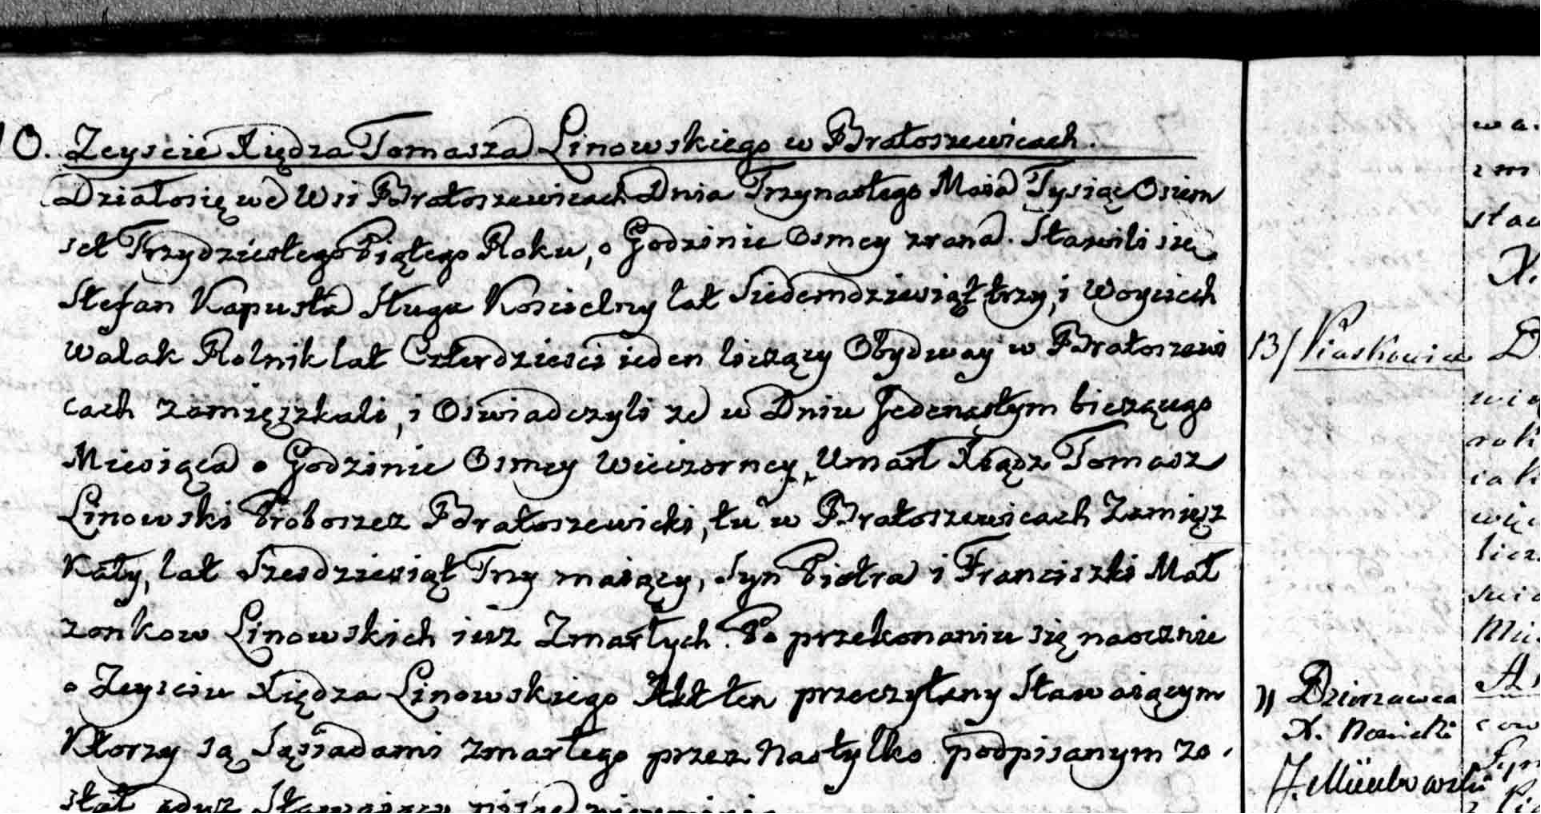 10. Zeyscie Xiędza Tomasza Linowskiego w Bratoszewicach.
Działosię we Wsi Bratoszewicach Dnia Trzynastego Maia Tysiąc Osiem
set Trzydziestego Piątego Roku, o Godzinie Osmey zrana. Stawili się
Stefan Kapusta Sługa Koscielny lat Siedemdziesiąt trzy, i Woyciech
Walak Rolnik lat Czterdziesci ieden liczący Obydway w Bratoszewi
cach zamięszkali, i Oswiadczyli ze w Dniu Jedenastym bieżącego
Miesiąca o Godzinie Osmey Wieczorney, Umarł Xiądz Tomasz
Linowski Proboszcz Bratoszewicki, tu w Bratoszewicach Zamięsz
kały, lat Szesdziesiąt Trzy maiący, Syn Piotra i Franciszki Mał
zonkow Linowskich iusz Zmarłych. Po przekonaniu się naocznie
o Zeysciu Xiędza Linowskiego Akt ten przeczytany Stawaiącym
Ktorzy są Sąsiadami zmarłego przez Nas tylko podpisanym zo
stał gdysz Stawaiący pisać nieumieią
13/ Piaskowice
Dzierzawca
X. Nowicki